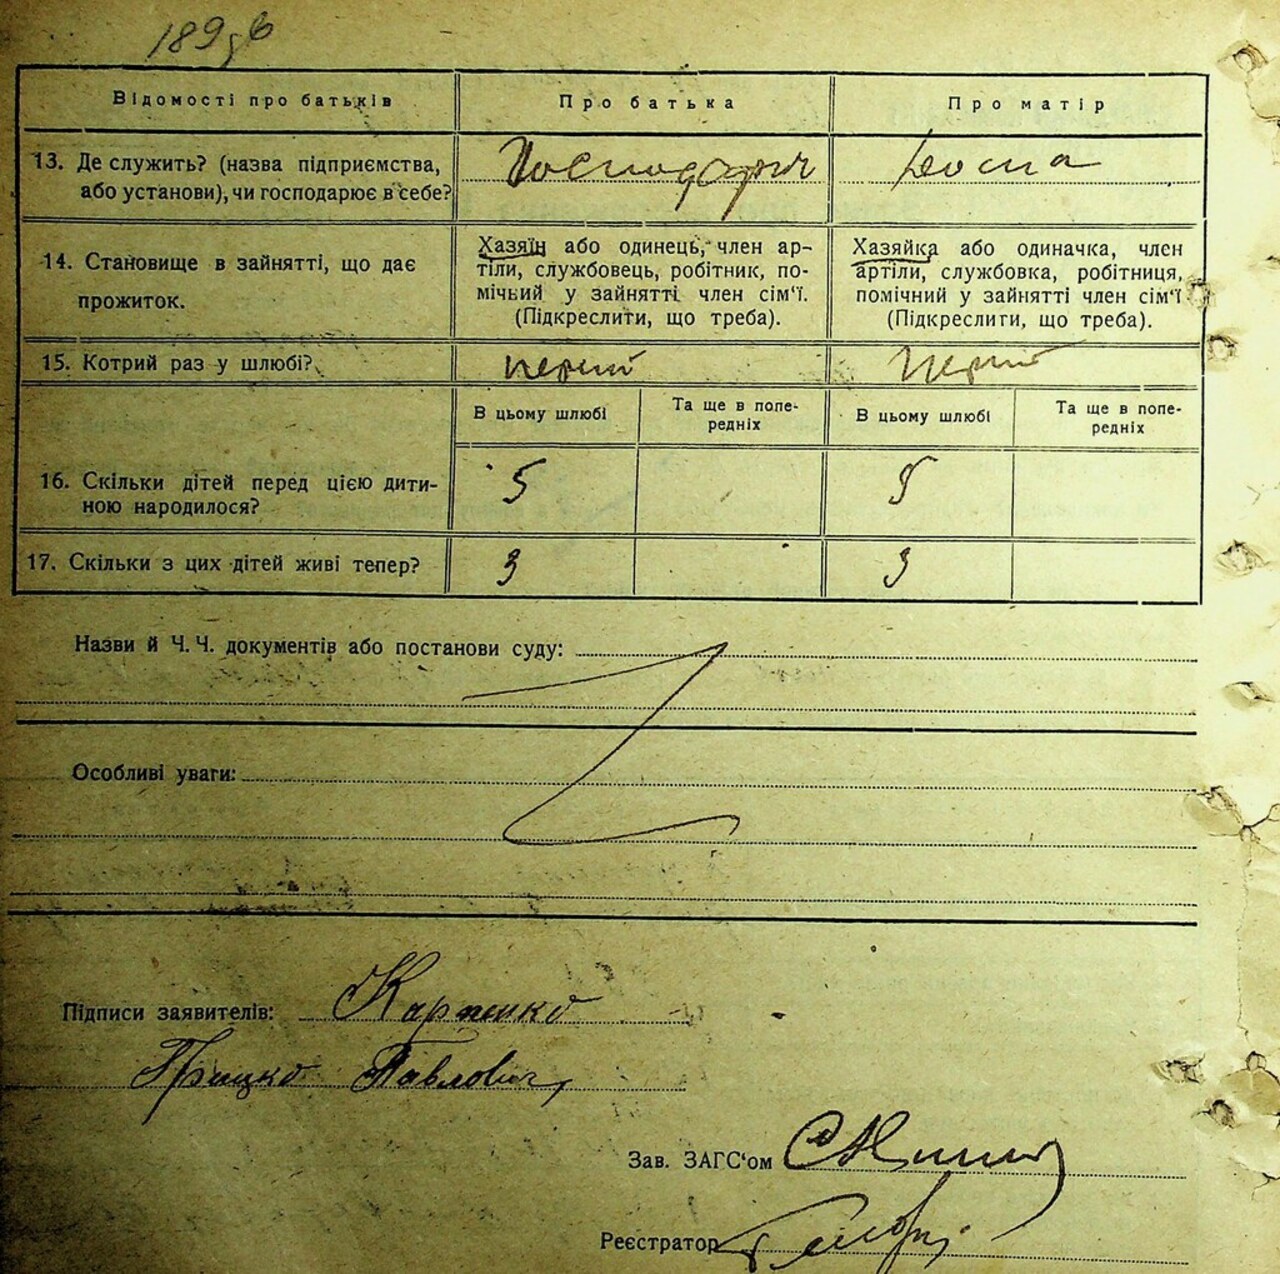 Відомості про батьків
Про батька
Про матір
13. Де служить? (назва підприємства,
або установи), чи господарює в себе?
14. Становище в зайнятті, що дає
прожиток.
Хазяїн або одинець, член ар-
тіли, службовець, робітник, по-
мічний у зайнятті член сім'ї.
(Підкреслити, що треба).
Хазяйка або одиначка, член
артіли, службовка, робітниця,
помічний у зайнятті член сім'ї
(Підкреслити, що треба).
15. Котрий раз у шлюбі?
В цьому шлюбі
Та ще в попе-
редніх
В цьому шлюбі
Та ще в попе-
редніх
16. Скільки дітей перед цією дити-
ною народилося?
5
5
17. Скільки з цих дітей живі тепер?
3
3
Назви й Ч. Ч. документів або постанови суду:
Особливі уваги:
Підписи заявителів: Карпенко
Грицко Павлович
Зав. ЗАГС'ом
Реєстратор